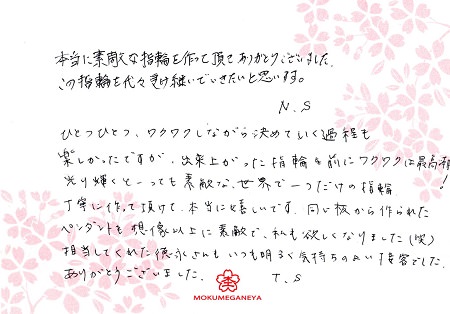 本当に素敵な指輪を作って頂てありがとうございました。
この指輪を代々受け継いでいきたいと思います。
N.S
ひとつひとつ、ワクワクしながら決めていく過程も
楽しかったですが、出来上がった指輪を前にワクワクは最高潮!
光り輝くとーっても素敵な、世界で一つだけの指輪
丁寧に作って頂けて、本当に嬉しいです。同じ板から作られた
ペンダントも想像以上に素敵で、私も欲しくなりました(笑)
担当してくれた徳永さんも いつも明るく気持ちのよい接客でした。
ありがとうございました。 T.S
MOKUMEGANEYA